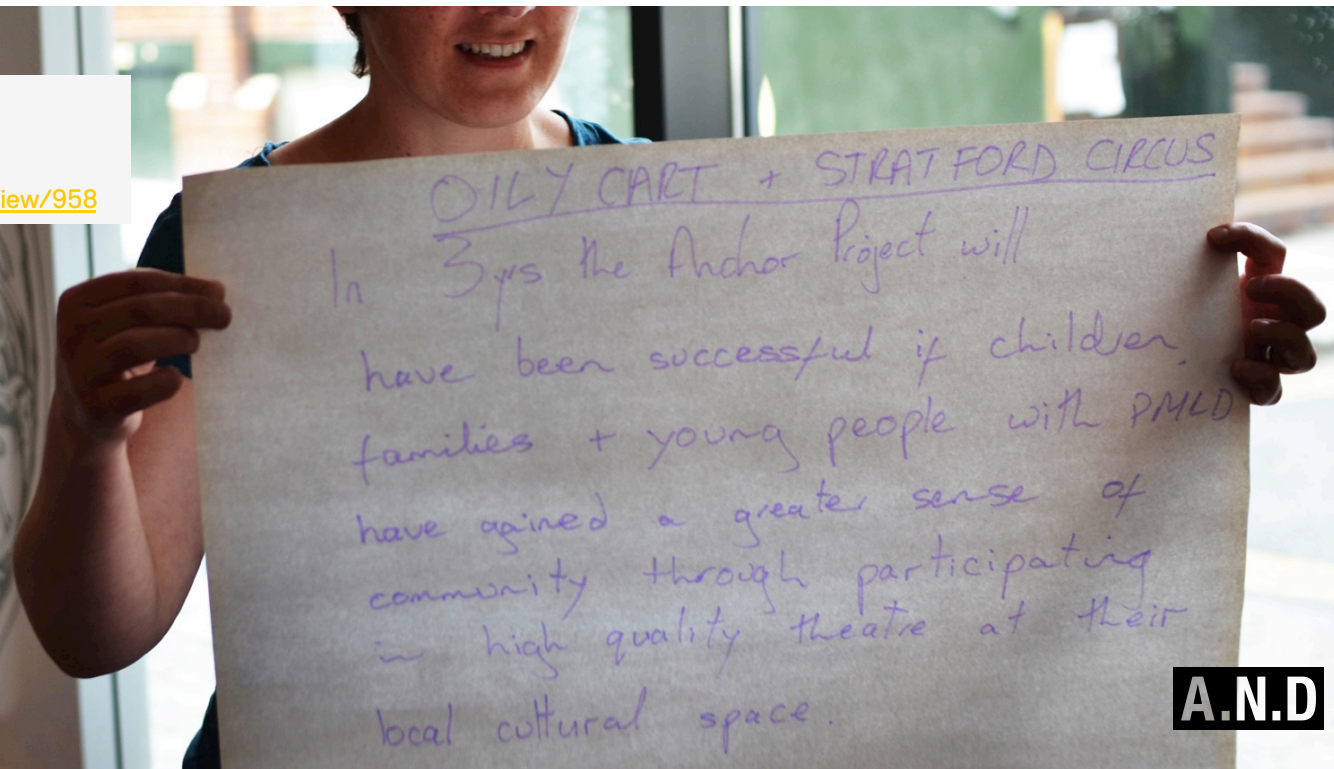 iew/958
OILY CART + STRATFORD CIRCUS
In 3yrs the Anchor Project will
have been successful if children,
families + young people with PMLD
have gained a greater sense of
community through participating
in high quality theatre at their
local cultural space.
A.N.D